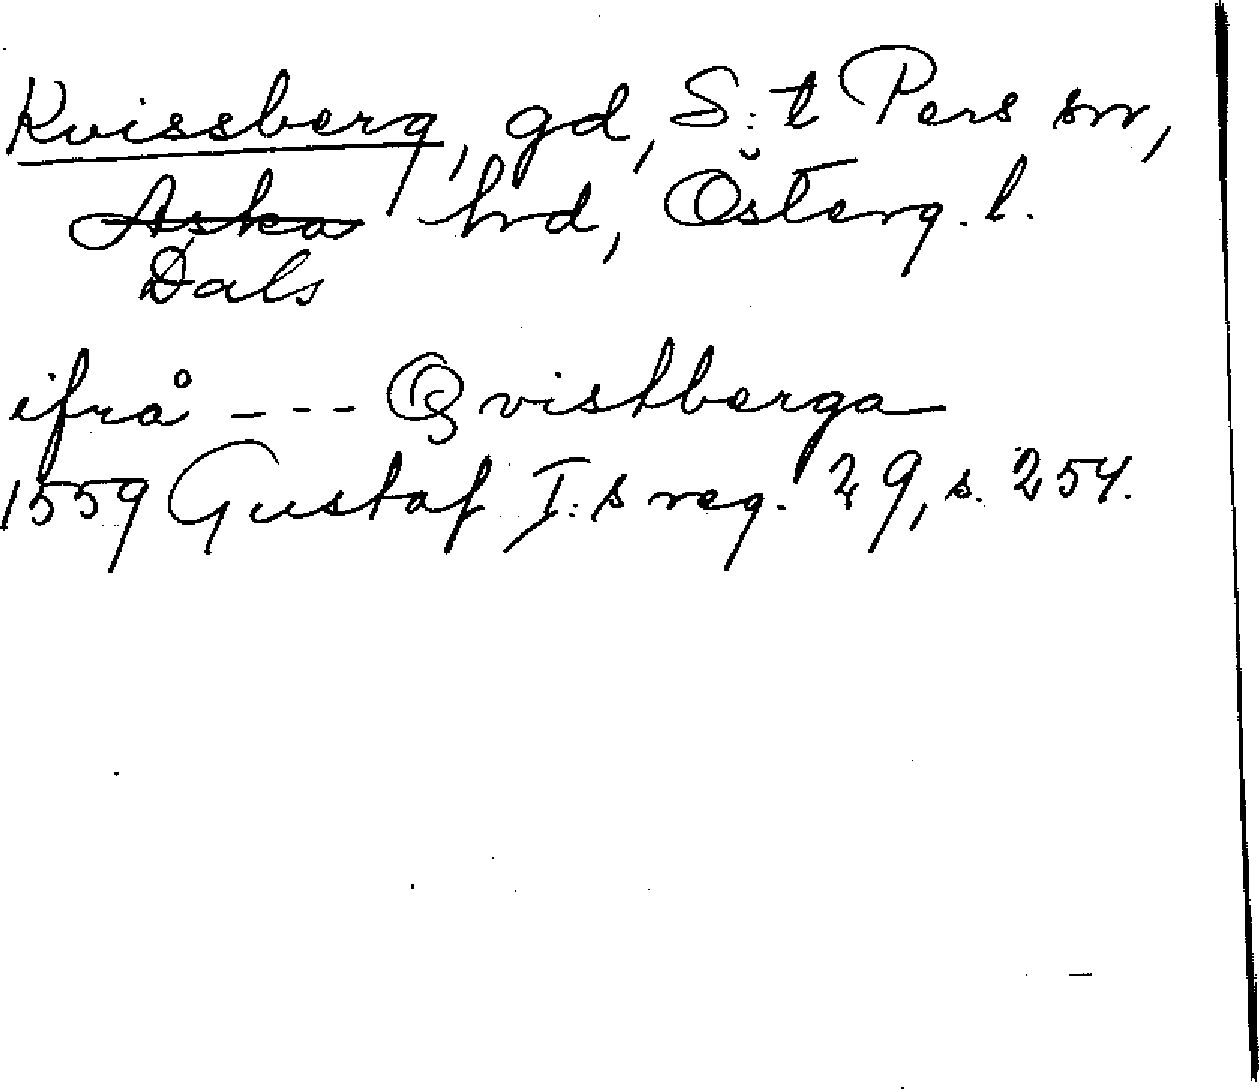 Kvissberg, gd, S:t Pers sn,
Aska hrd, Österg. l.
Dals
ifrå - - - Qvistberga
1559 Gustaf I:s reg. 29, s. 254.